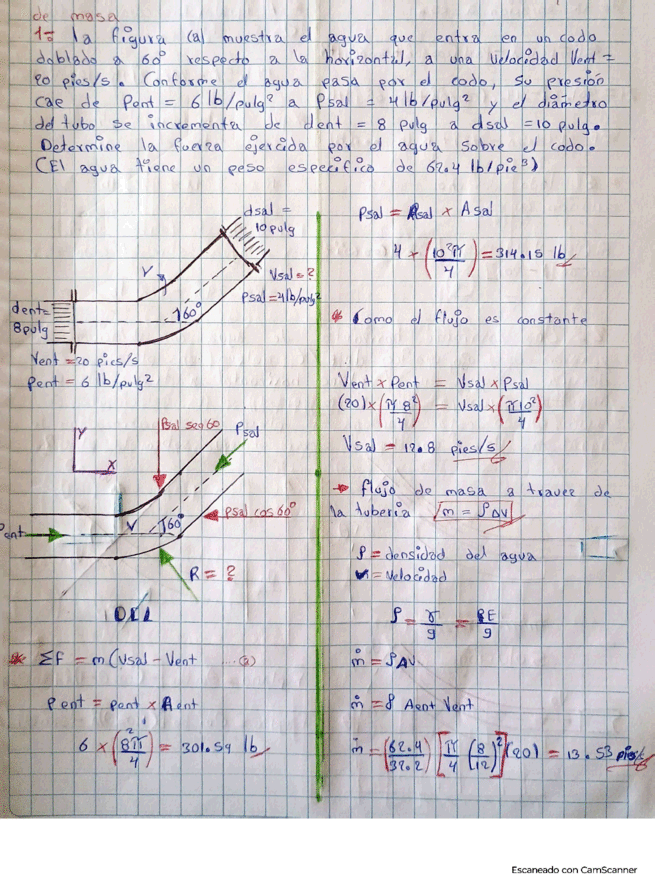 de masa
1º La figura (a) muestra el agua que entra en un codo
doblado a 60° respecto a la horizontal, a una velocidad Vent =
20 pies/s. Conforme el agua pasa por el codo, su presión
cae de Pent = 6 lb/pulg² a Psal = 4 lb/pulg² y el diámetro
del tubo se incrementa de dent = 8 pulg a dsal = 10 pulg.
Determine la fuerza ejercida por el agua sobre el codo.
(El agua tiene un peso especifico de 62.4 lb/pie³)
dsal =
10 pulg
Vsal = ?
Psal = 4 lb/pulg²
V
60°
dent =
8 pulg
Vent = 20 pies/s
Pent = 6 lb/pulg²
Y
X
Psal sen 60
Psal
Pent
V
60°
Psal cos 60°
R = ?
DCL
* ΣF = m (Vsal - Vent ....(a)
Pent = Pent x Aent
6 x (8²π/4) = 301.59 lb
Psal = Psal x Asal
4 x (10²π/4) = 314.15 lb
* Como el flujo es constante
Vent x Pent = Vsal x Psal
(20) x (π 8²/4) = Vsal x (π10²/4)
Vsal = 12.8 pies/s
flujo de masa a travez de
la tuberia m = ρAV
ρ = densidad del agua
v = velocidad
ρ = γ/g = PE/g
ṁ = ρAV
ṁ = ρ Aent Vent
ṁ = (62.4/32.2) [π/4 (8/12)²] (20) = 13.53
Escaneado con CamScanner